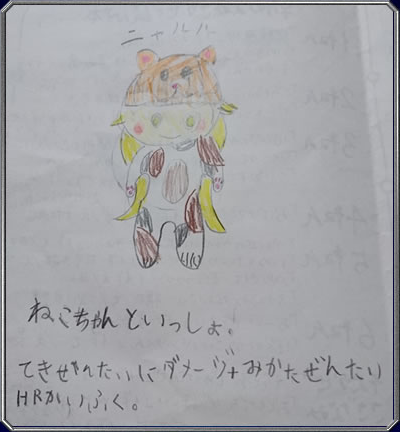 ニャルル
ねこちゃんといっしょ!
てきぜんたいにダメージ+みかたぜんたい
HRかいふく。